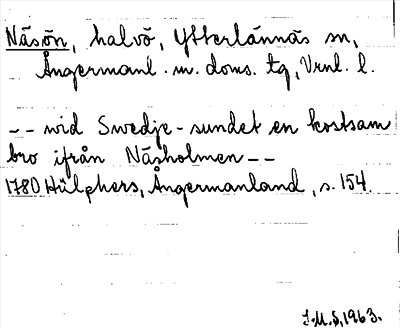 Näsön, halvö, Ytterlännäs sn,
Ångermanl. m. doms. tg, Vrnl. l.
-- wid Swedje-sundet en kostsam
bro ifrån Näsholmen --
1780 Hülphers, Ångermanland, s. 154.
J.M.S, 1963.